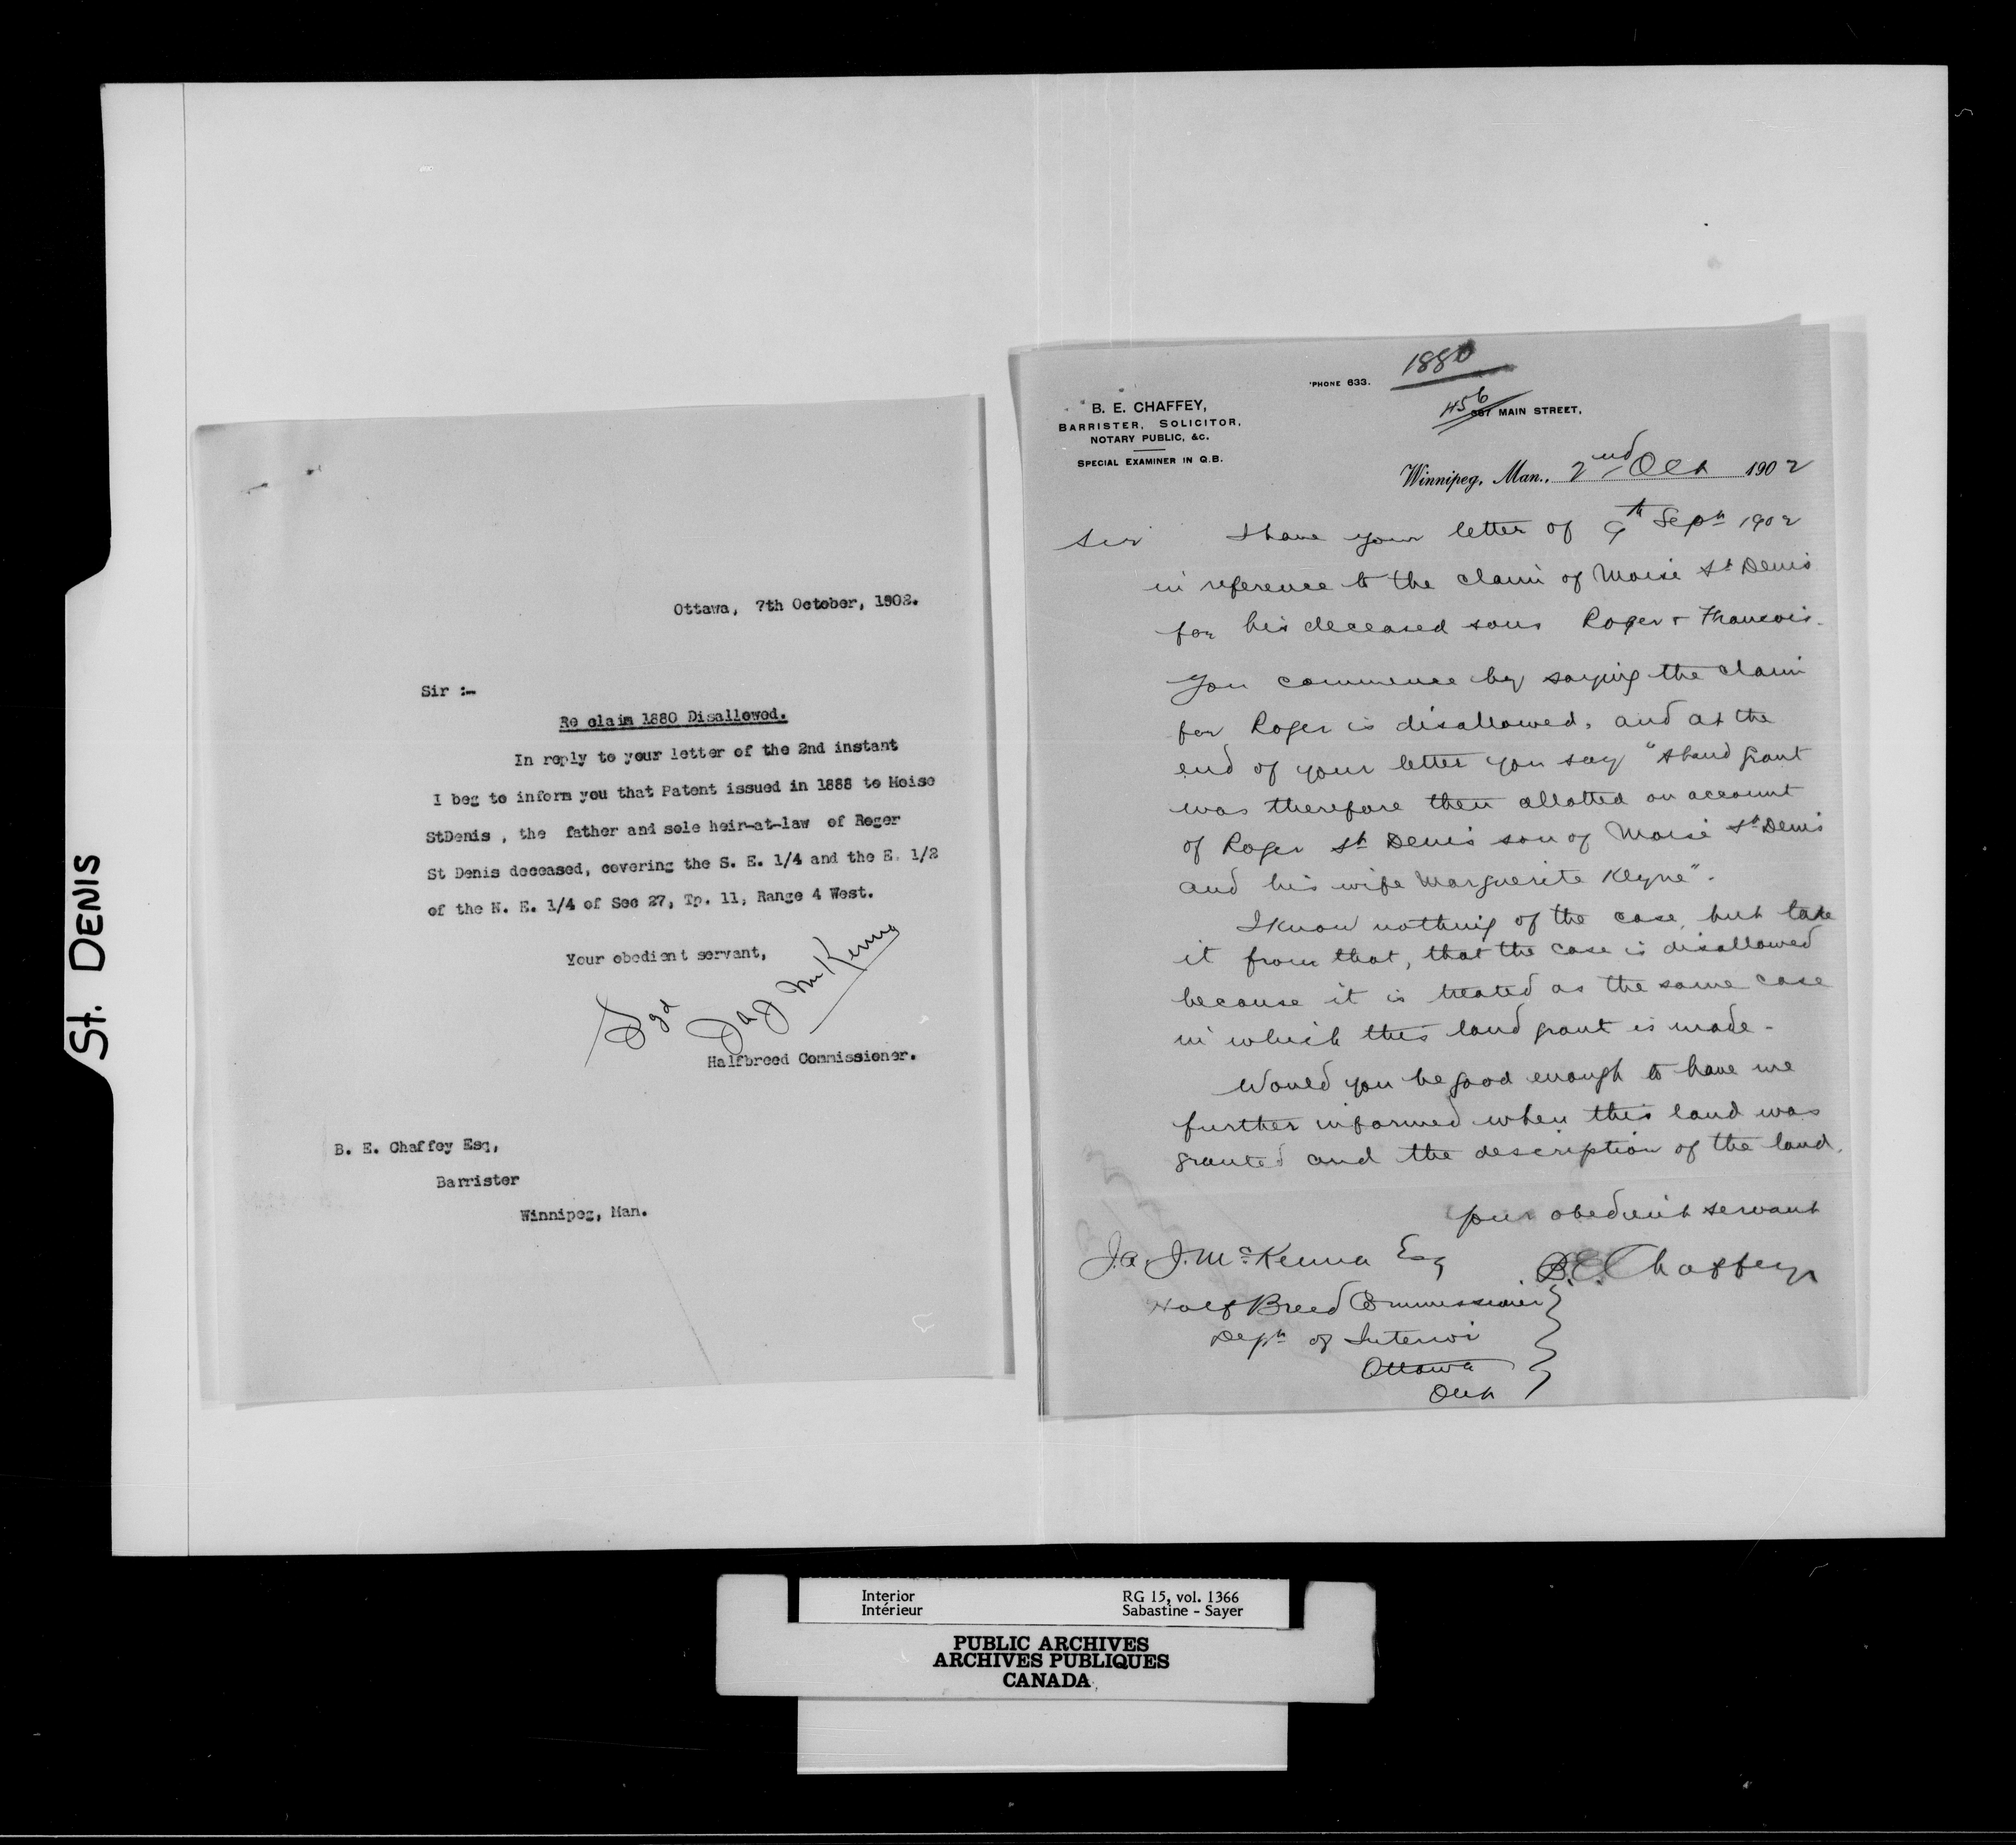 St. DENIS
Ottawa, 7th October, 1902.
Sir :-
Re claim 1880 Disallowed.
In reply to your letter of the 2nd instant
I beg to inform you that Patent issued in 1888 to Moise
StDenis , the father and sole heir-at-law of Roger
St Denis deceased, covering the S. E. 1/4 and the E. 1/2
of the N. E. 1/4 of Sec 27, Tp. 11, Range 4 West.
Your obedient servant,
Sgd JAJ McKenna
Halfbreed Commissioner.
B. E. Chaffey Esq,
Barrister
Winnipeg, Man.
1880
'PHONE 633.
456 MAIN STREET,
B. E. CHAFFEY,
BARRISTER, SOLICITOR,
NOTARY PUBLIC, &C.
SPECIAL EXAMINER IN Q.B.
Winnipeg, Man., 2nd Oct 1902
Sir I have your letter of 9th Sept 1902
in reference to the claim of Moise St Denis
for his deceased sons Roger & Francois.
You commence by saying the claim
for Roger is disallowed, and at the
end of your letter you say "A land grant
was therefore then allotted on account
of Roger St Denis son of Moise St Denis
and his wife Marguerite Klyne".
I know nothing of the case, but take
it from that, that the case is disallowed
because it is treated as the same case
in which this land grant is made -
Would you be good enough to have me
further informed when this land was
granted and the description of the land.
Your obedient servant
B.E. Chaffey
J.A.J. McKenna Esq
Half Breed Commissioner
Dept of Interior
Ottawa
Ont
Interior
Intérieur
RG 15, vol. 1366
Sabastine - Sayer
PUBLIC ARCHIVES
ARCHIVES PUBLIQUES
CANADA